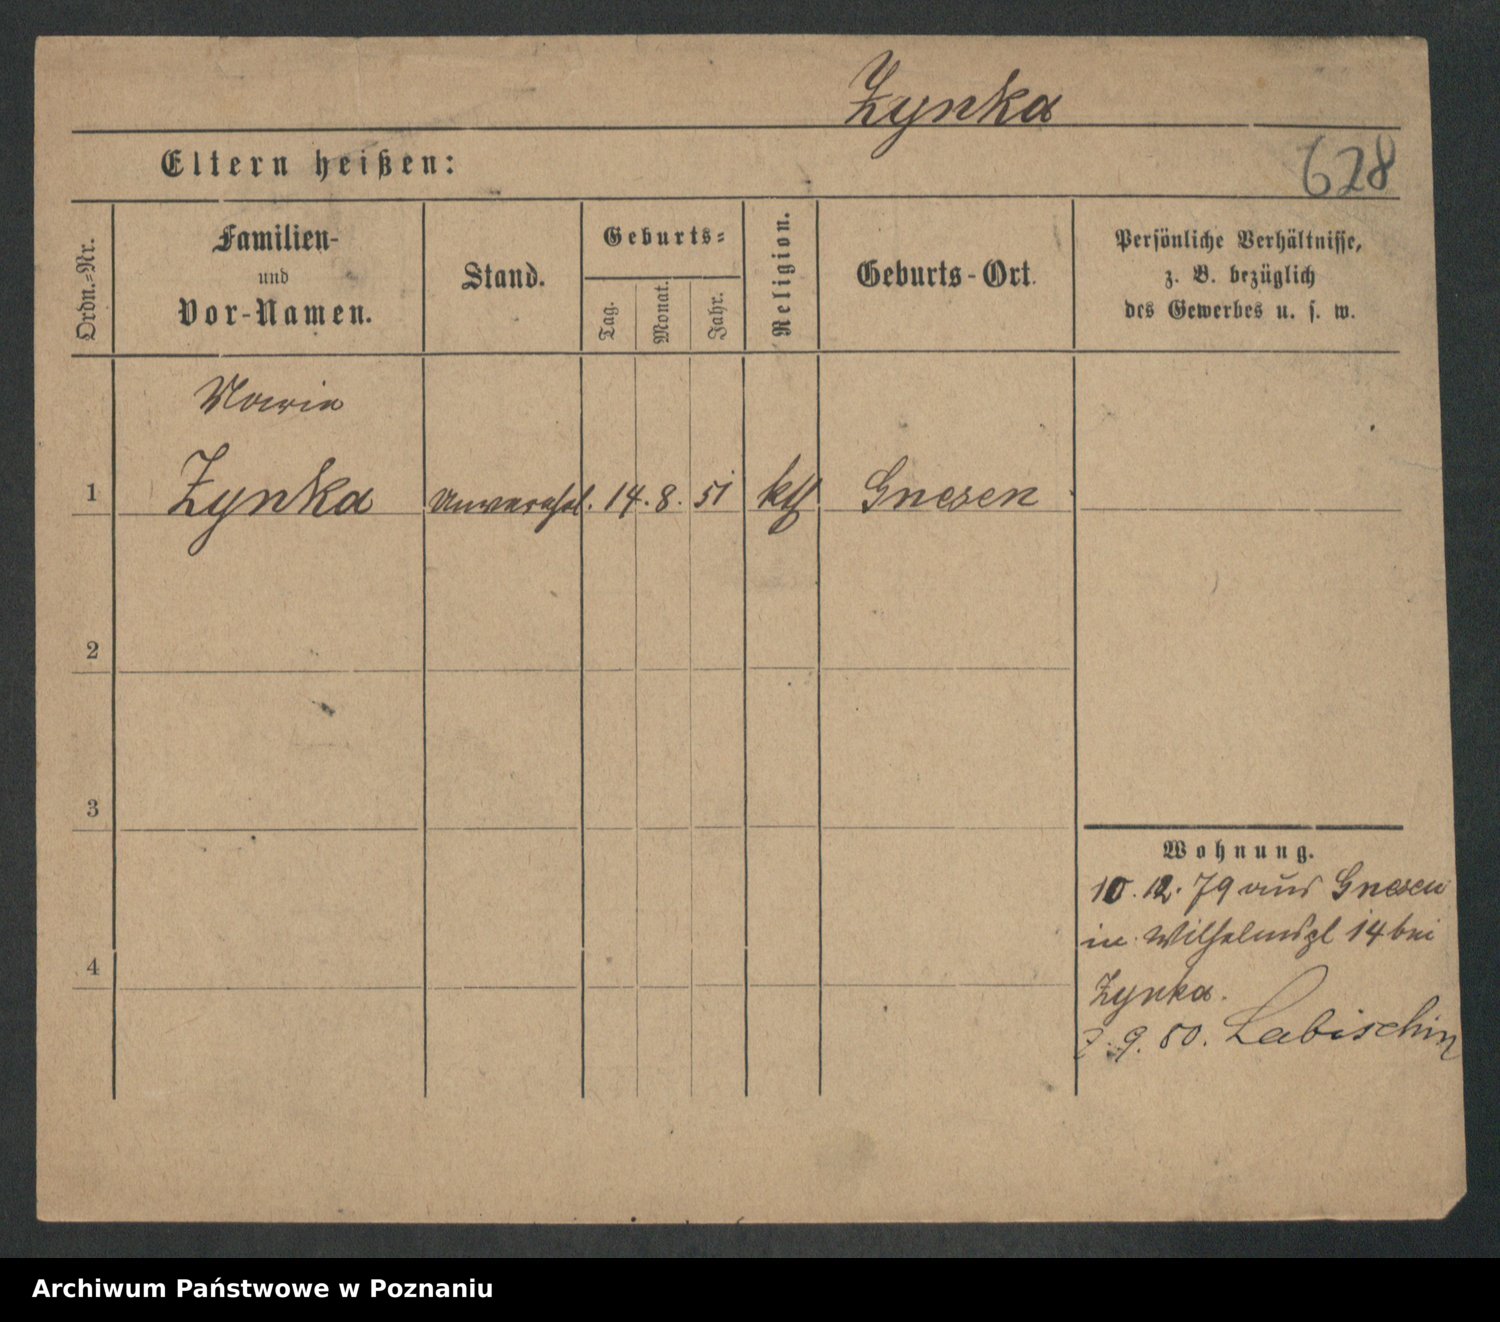 Zynka
Eltern heißen:
628
Ordn.-Nr.
Familien-
und
Vor-Namen.
Stand.
Geburts-
Tag.
Monat.
Jahr.
Religion.
Geburts-Ort.
Persönliche Verhältnisse,
z. B. bezüglich
des Gewerbes u. s. w.
Maria
1 Zynka Unverehel. 14. 8. 51 kth Gnesen
2
3
4
Wohnung.
10. 12. 79 aus Gnesen
in Wilhelmspl 14 bei
Zynka.
9. 80. Labischin
Archiwum Państwowe w Poznaniu